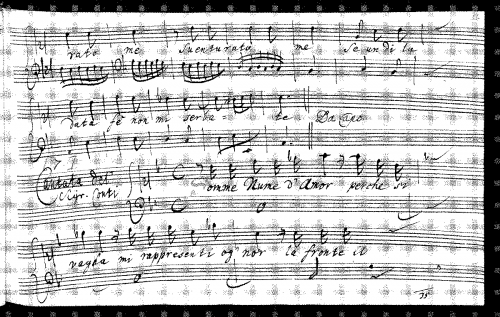 rato me suenturato me se un di la
data fè non mi serba - te Da Capo
Cantata Del
Sigr. Conti
omme Nume d'Amor perche si
vagha mi rappresenti ogn'hor la fronte il